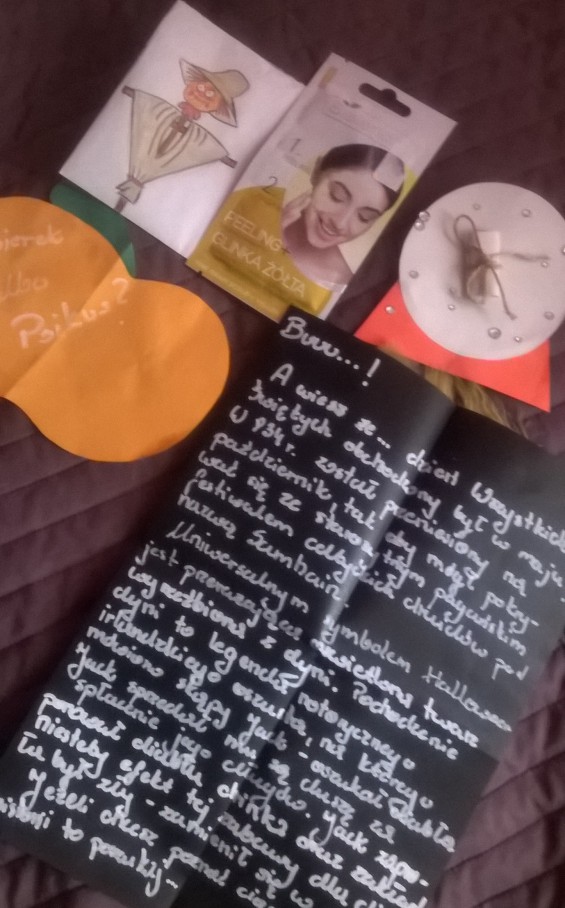 cukierek
albo
Psikus?
PEELING
GLINKA ŻÓŁTA
Buuu...!
A wiesz że... dzień Wszystkich
Świętych obchodzony był w maju.
W 834 r. został przeniesiony na
październik tak aby mógł pokry-
wać się ze starożytnym pogańskim
festiwalem celtyckich druidów pod
nazwą Samhain.
Uniwersalnym symbolem Halloween
jest przerażająca świetlona twarz
wyrzeźbiona z dyni. Pochodzenie
dyni to legenda notorycznego
irlandzkiego oszusta, na którego
mówiono Skąpy Jack - oszukał diabła
jack sprzedał mu są duszę za
spłacenie jego długów. Jack
diabłu
niestety efekt tej zabawy dla
był zły - zamienił się w
Jeżeli chcesz poznać
to poszukaj...